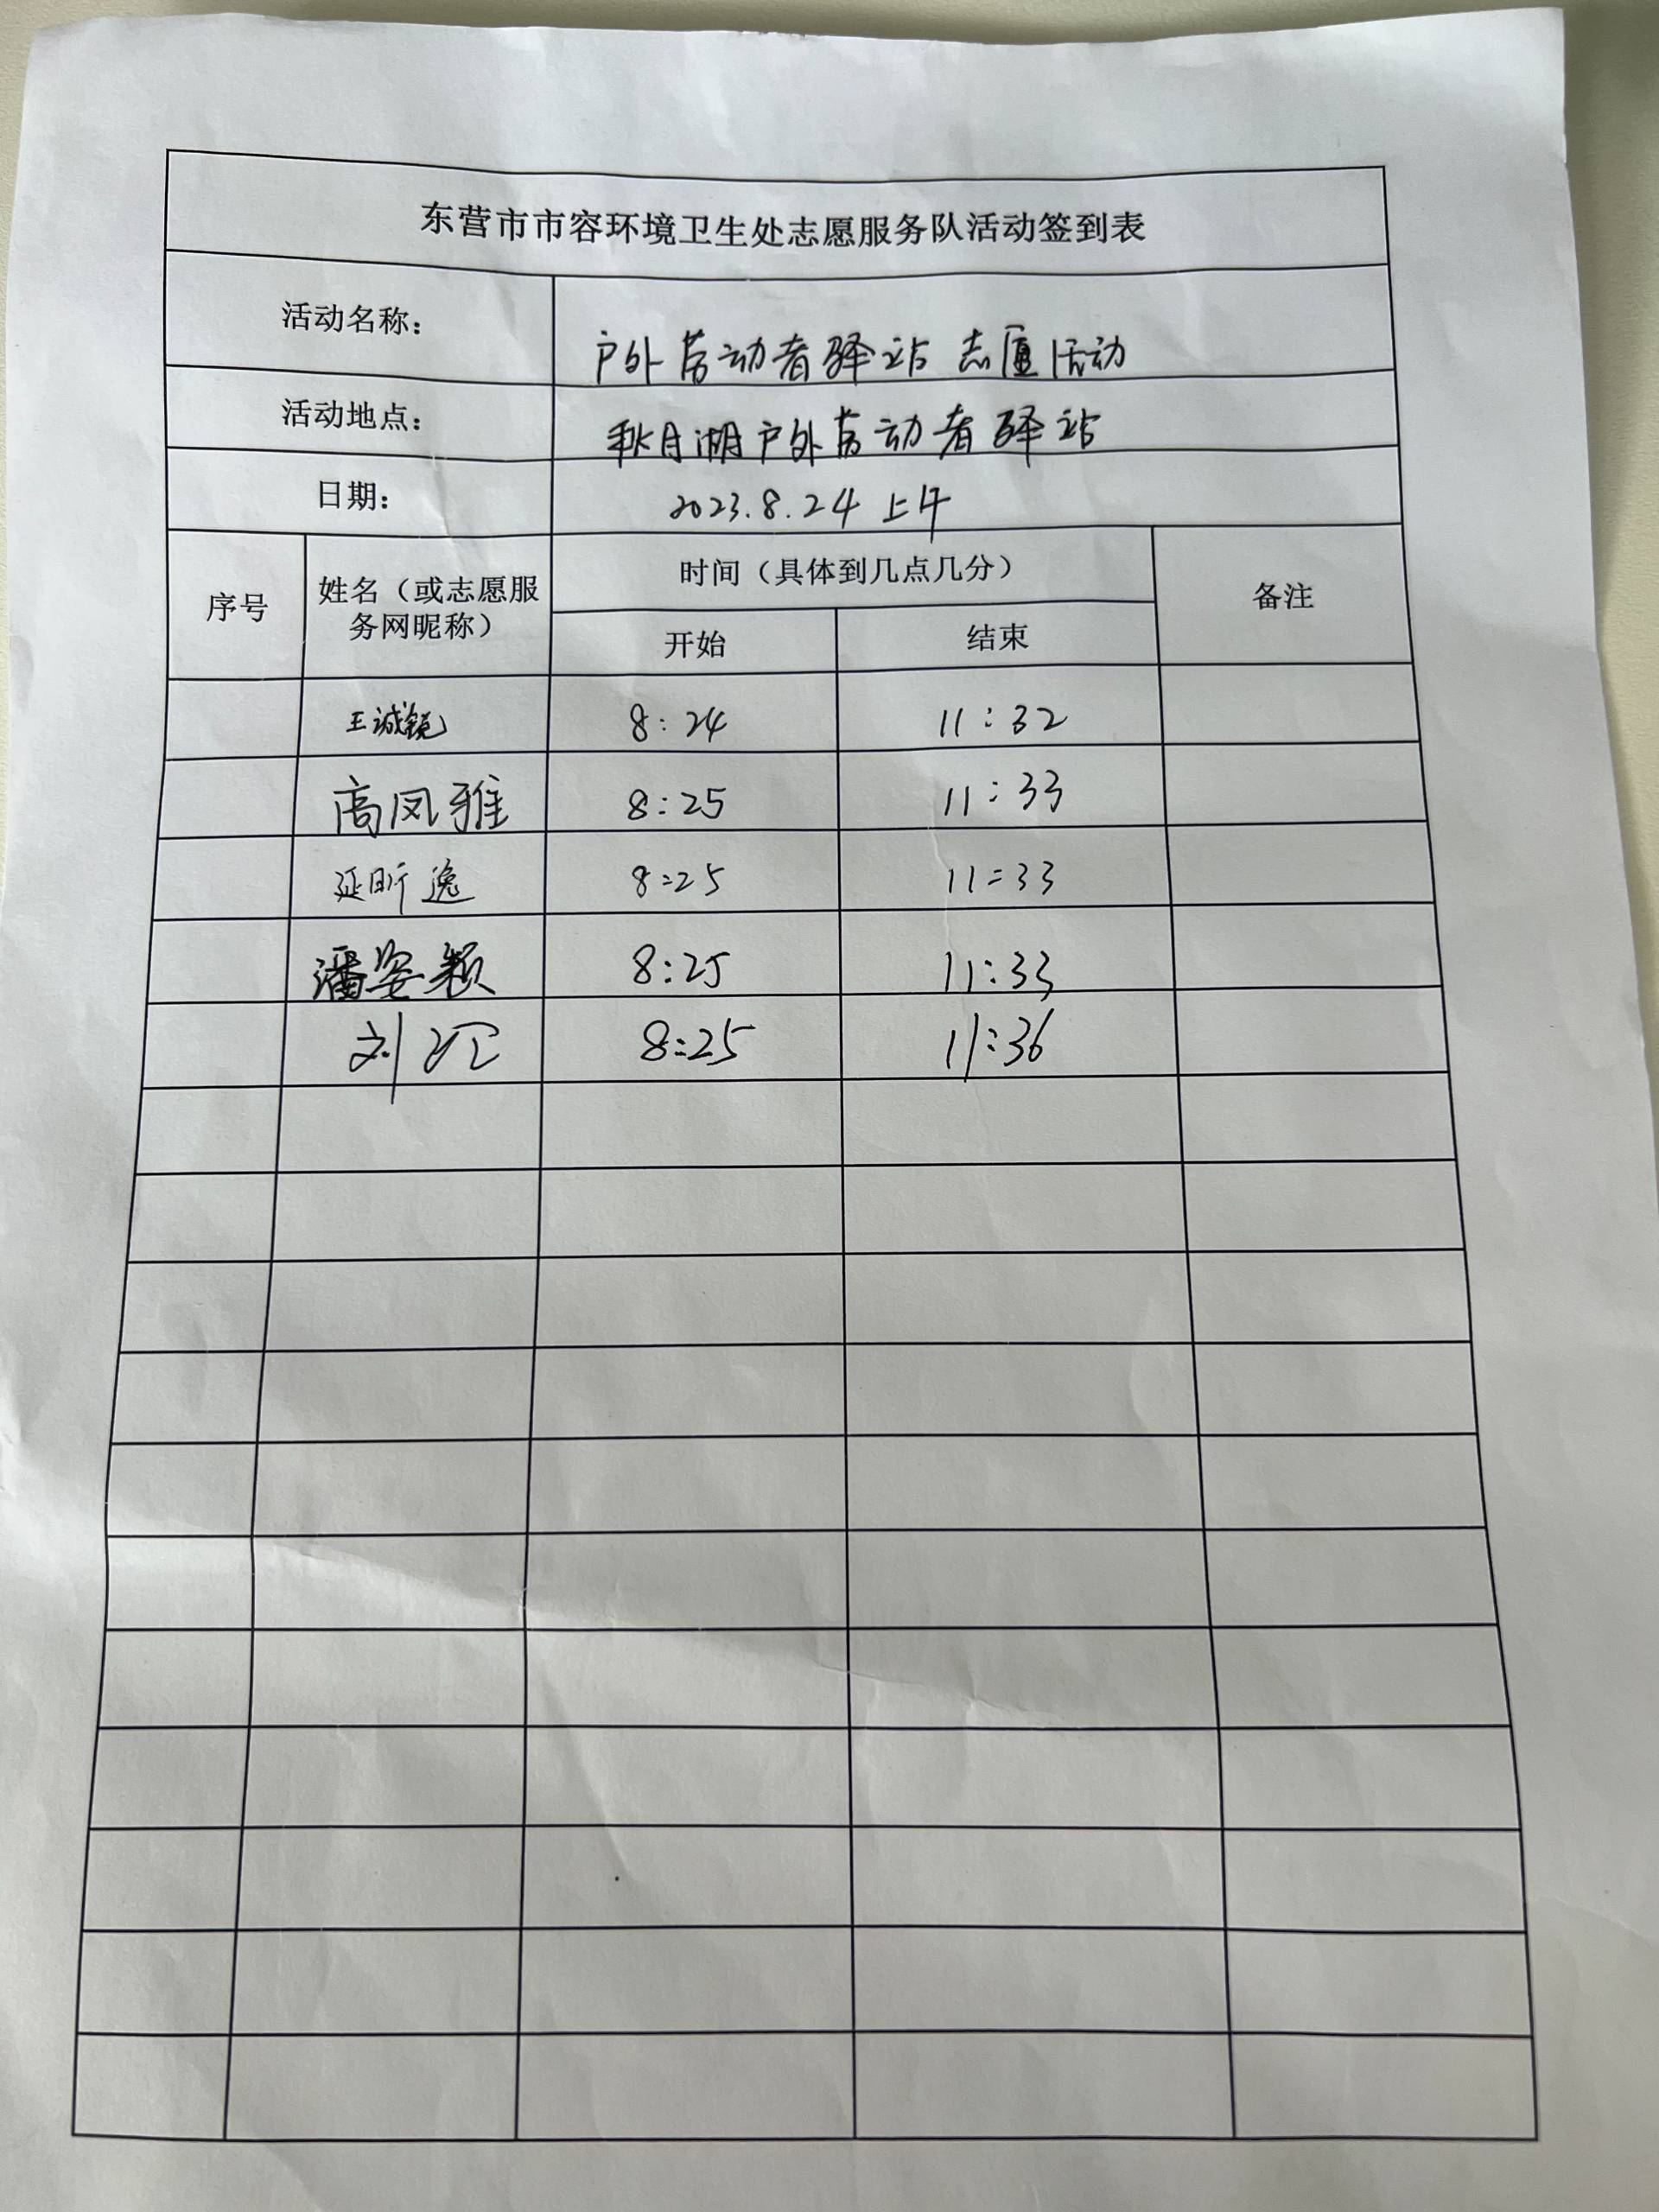 东营市市容环境卫生处志愿服务队活动签到表
活动名称：
户外劳动者驿站志愿活动
活动地点：
秋月湖户外劳动者驿站
日期：
2023.8.24 上午
序号
姓名（或志愿服
务网昵称）
时间（具体到几点几分）
开始
结束
备注
王诚镜 8:24 11:32
高凤雅 8:25 11:33
延昕逸 8:25 11:33
潘姿颖 8:25 11:33
刘 8:25 11:36